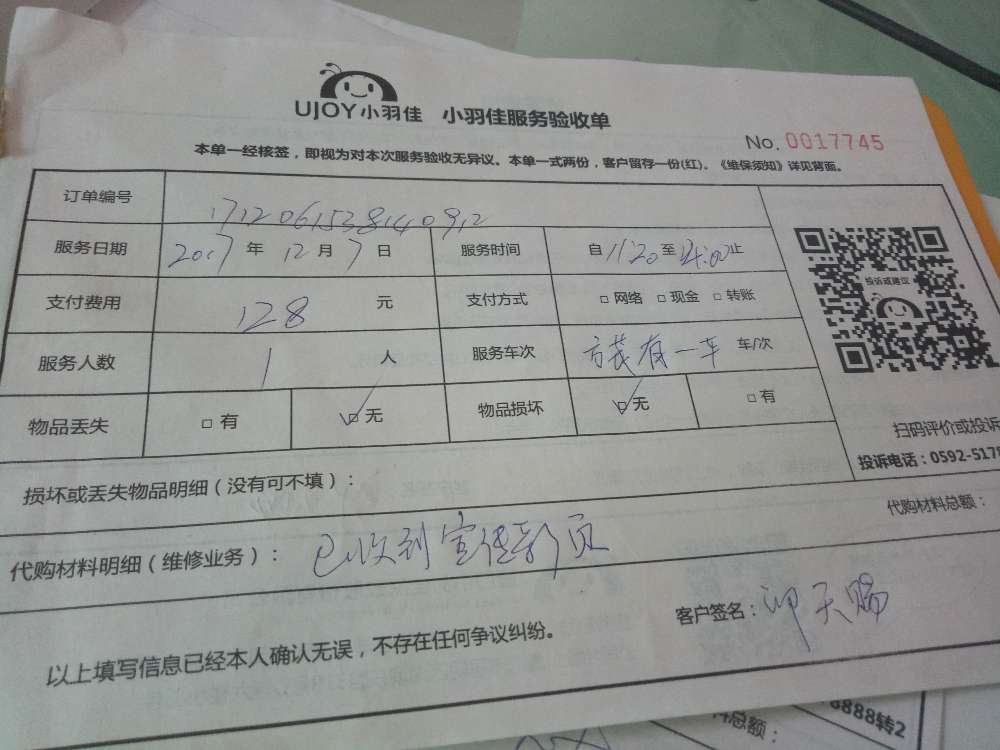 UJOY小羽佳 小羽佳服务验收单
No. 0017745
本单一经核签，即视为对本次服务验收无异议。本单一式两份，客户留存一份(红)。《维保须知》详见背面。
订单编号 171206153814092
服务日期 2017 年 12 月 7 日 服务时间 自 11:20 至 14:00 止
投诉或建议
支付费用 128 元 支付方式 □ 网络 □ 现金 □ 转账
服务人数 1 人 服务车次 一车 车/次
物品丢失 □ 有 ☑ 无 物品损坏 ☑ 无 □ 有
扫码评价或投诉
投诉电话：0592-517
损坏或丢失物品明细（没有可不填）：
代购材料总额：
代购材料明细（维修业务）： 已收到宣传彩页
客户签名： 天赐
以上填写信息已经本人确认无误，不存在任何争议纠纷。
8888转2
料总额：